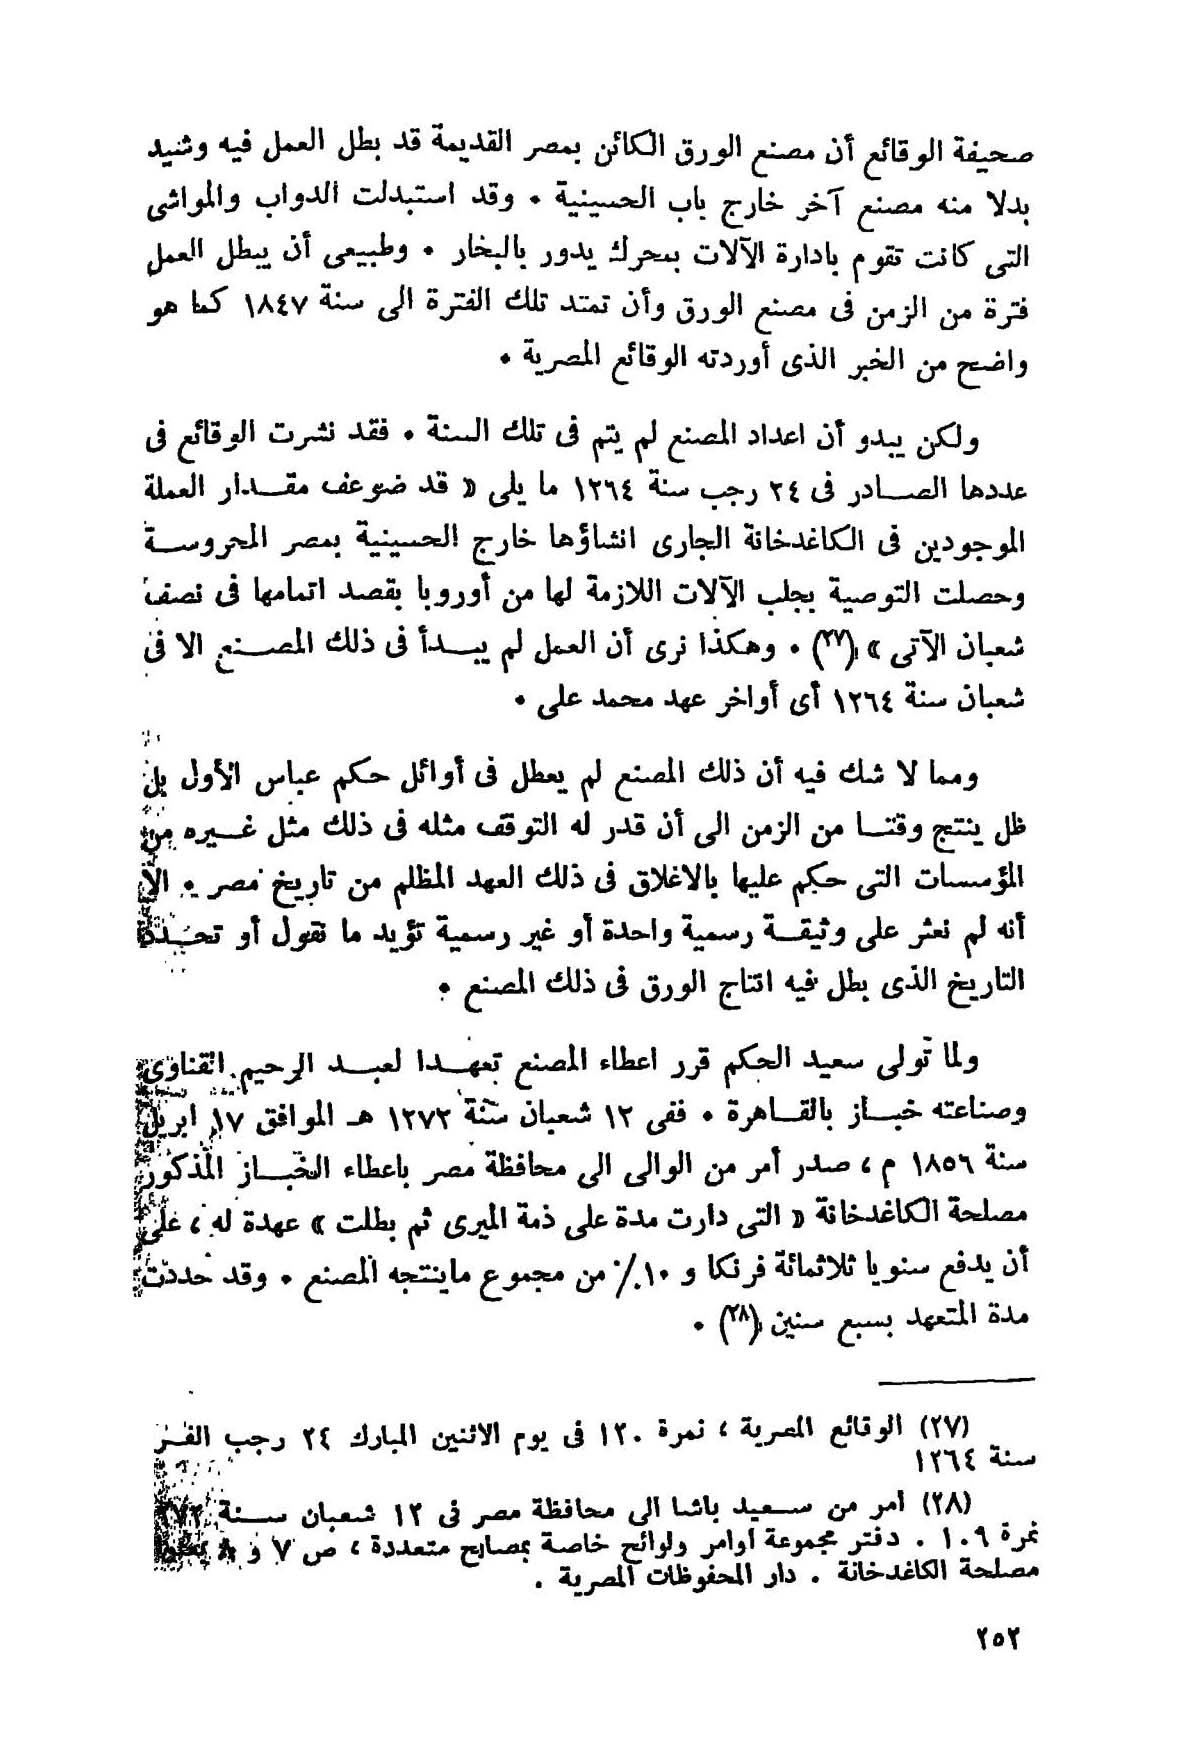 صحيفة الوقائع أن مصنع الورق الكائن بمصر القديمة قد بطل العمل فيه وشيد
بدلا منه مصنع آخر خارج باب الحسينية . وقد استبدلت الدواب والمواشى
التى كانت تقوم بادارة الآلات بمحرك يدور بالبخار . وطبيعى أن يبطل العمل
فترة من الزمن فى مصنع الورق وأن تمتد تلك الفترة الى سنة ١٨٤٧ كما هو
واضح من الخبر الذى أوردته الوقائع المصرية .
ولكن يبدو أن اعداد المصنع لم يتم فى تلك السنة . فقد نشرت الوقائع فى
عددها الصـادر فى ٢٤ رجب سنة ١٢٦٤ ما يلى « قد ضوعف مقـدار العملة
الموجودين فى الكاغدخانة الجارى انشاؤها خارج الحسينية بمصر المحروسـة
وحصلت التوصية بجلب الآلات اللازمة لها من أوروبا بقصد اتمامها فى نصف
شعبان الآتى » (٢٧) . وهكذا نرى أن العمل لم يبـدأ فى ذلك المصـنع الا فى
شعبان سنة ١٢٦٤ أى أواخر عهد محمد على .
ومما لا شك فيه أن ذلك المصنع لم يعطل فى أوائل حكم عباس الأول بل
ظل ينتج وقتـا من الزمن الى أن قدر له التوقف مثله فى ذلك مثل غـيره من
المؤسسات التى حكم عليها بالاغلاق فى ذلك العهد المظلم من تاريخ مصر . الا
أنه لم نعثر على وثيقـة رسمية واحدة أو غير رسمية تؤيد ما نقول أو تحـدد
التاريخ الذى بطل فيه انتاج الورق فى ذلك المصنع .
ولما تولى سعيد الحكم قرر اعطاء المصنع تعهـدا لعبـد الرحيم القناوى
وصناعته خبـاز بالقـاهرة . ففى ١٢ شعبان سنة ١٢٧٢ هـ الموافق ١٧ ابريل
سنة ١٨٥٦ م ، صدر أمر من الوالى الى محافظة مصر باعطاء الخبـاز المذكور
مصلحة الكاغدخانة « التى دارت مدة على ذمة الميرى ثم بطلت » عهدة له ، على
أن يدفع سنويا ثلاثمائة فرنكا و ١٠٪ من مجموع ماينتجه المصنع . وقد حددت
مدة المتعهد بسبع سنين (٢٨) .
(٢٧) الوقائع المصرية ، نمرة ١٢٠ فى يوم الاثنين المبارك ٢٤ رجب الفـر
سنة ١٢٦٤
(٢٨) امر من سـعيد باشا الى محافظة مصر فى ١٢ شعبان سـنة
نمرة ١٠٩ . دفتر مجموعة أوامر ولوائح خاصة بمصالح متعددة ، ص ٧ و ٨
مصلحة الكاغدخانة . دار المحفوظات المصرية .
٢٥٢